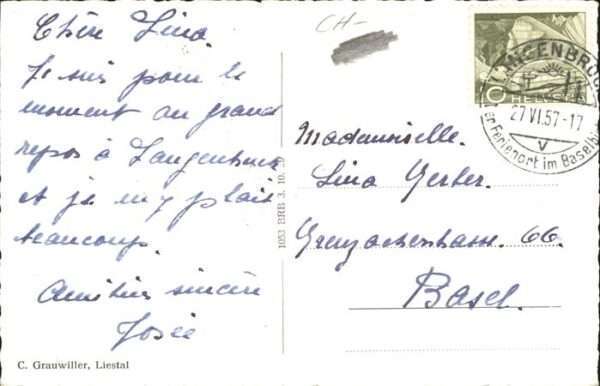 Chère Lina.
Je suis pour le
moment au grand
repos à Langenbruck
et je m'y plais
beaucoup.
Amitiés sincère
Josée
C. Grauwiller, Liestal
1053 BRB 3. 10. 39
CH-
HELVETIA
LANGENBRUCK
27.VI.57-17
V
der Ferienort im Baselb
Mademoiselle.
Lina Gerber.
Grenzacherstrasse. 66.
Basel.